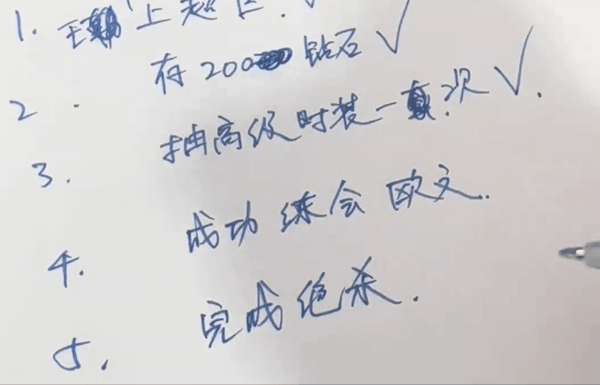 1. 王 上超巨. √
2. 存200 钻石 √
3. 抽高级时装一次 √.
4. 成功练会欧文.
5. 完成绝杀.